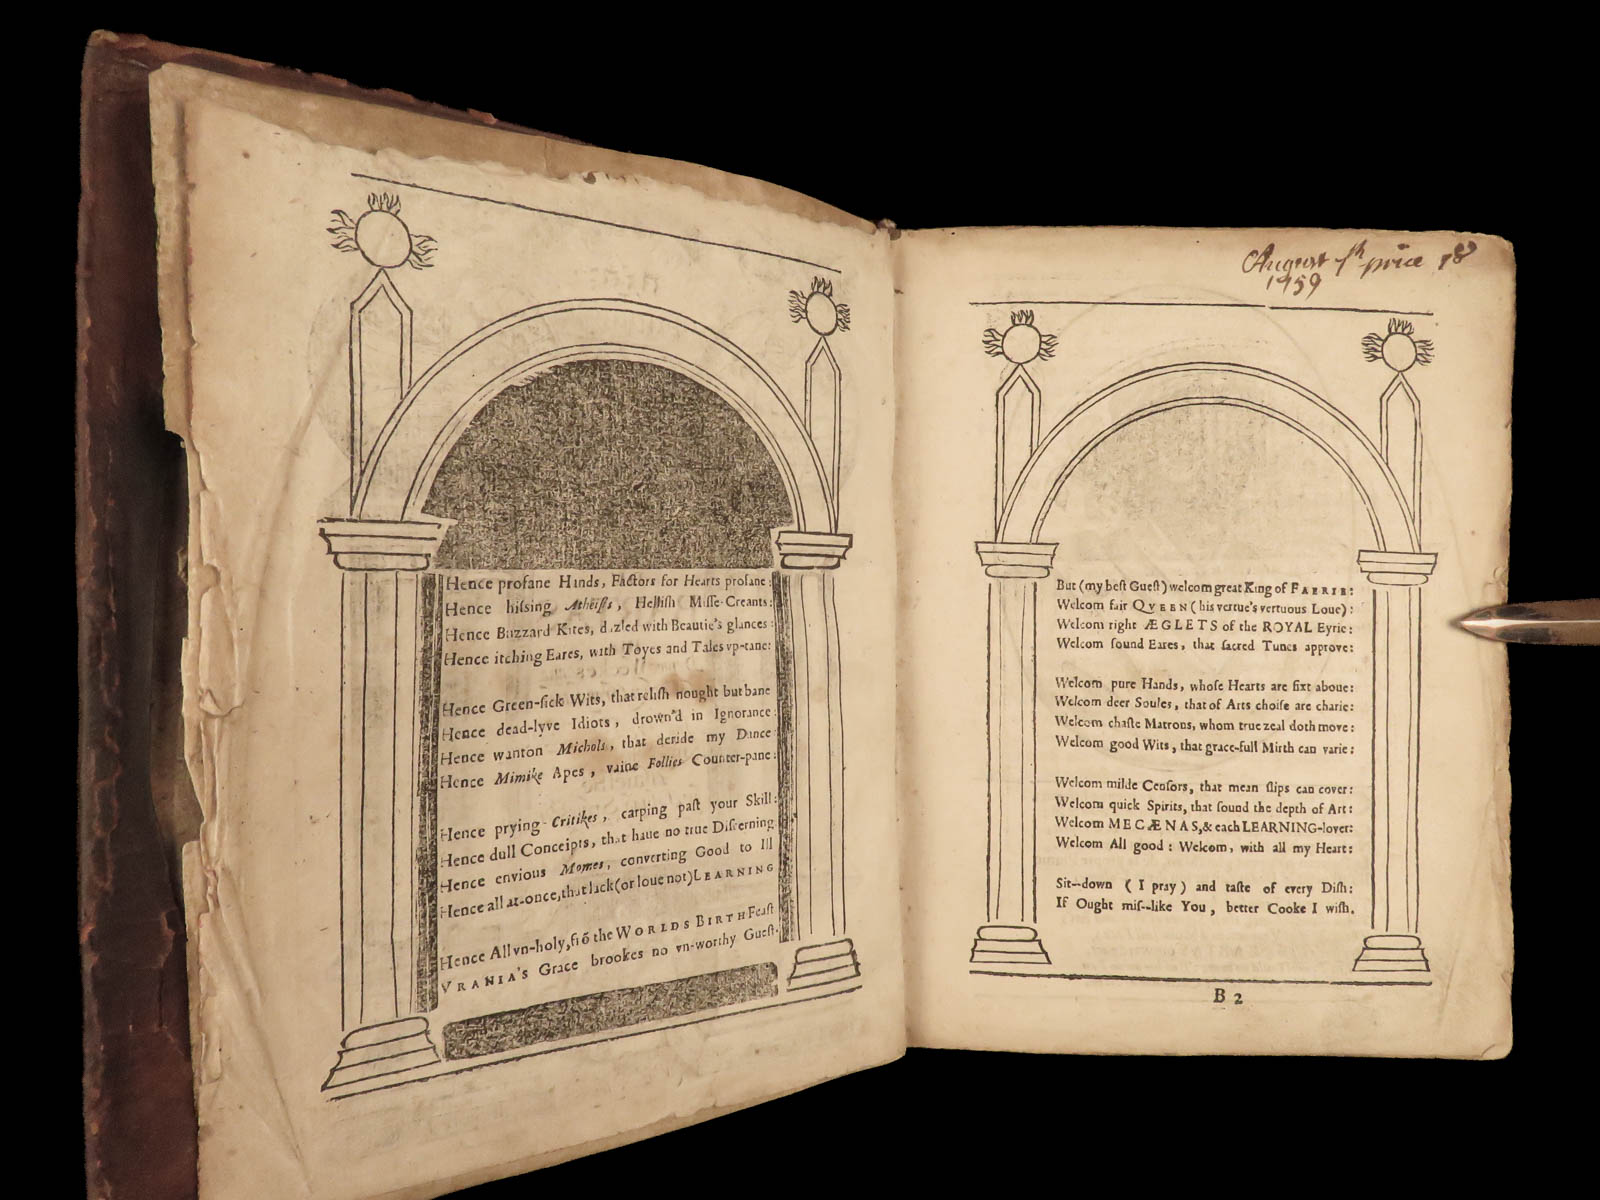 Hence profane Hands, Factors for Hearts profane:
Hence hissing Atheists, Hellish Misse-Creants:
Hence Buzzard Kites, dazled with Beautie's glances:
Hence itching Eares, with Toyes and Tales vp-tane:
Hence Green-sick Wits, that relish nought but bane
Hence dead-lyve Idiots, drown'd in Ignorance:
Hence wanton Michols, that deride my Dance
Hence Mimike Apes, vaine Follies Counter-pane:
Hence prying Critikes, carping past your Skill:
Hence dull Conceipts, that haue no true Discerning
Hence envious Momes, converting Good to Ill
Hence all at-once, that lack (or loue not) LEARNING
Hence All vn-holy, frō the WORLDS BIRTH Feast
VRANIA's Grace brookes no vn-worthy Guest.
August price 18
1759
But (my best Guest) welcom great King of FAERIE:
Welcom fair QVEEN (his vertue's vertuous Loue):
Welcom right ÆGLETS of the ROYAL Eyrie:
Welcom sound Eares, that sacred Tunes approve:
Welcom pure Hands, whose Hearts are fixt aboue:
Welcom deer Soules, that of Arts choise are charie:
Welcom chaste Matrons, whom true zeal doth move:
Welcom good Wits, that grace-full Mirth can varie:
Welcom milde Censors, that mean slips can cover:
Welcom quick Spirits, that sound the depth of Art:
Welcom MECÆNAS, & each LEARNING-lover:
Welcom All good: Welcom, with all my Heart:
Sit--down (I pray) and taste of every Dish:
If Ought mis--like You, better Cooke I wish.
B 2